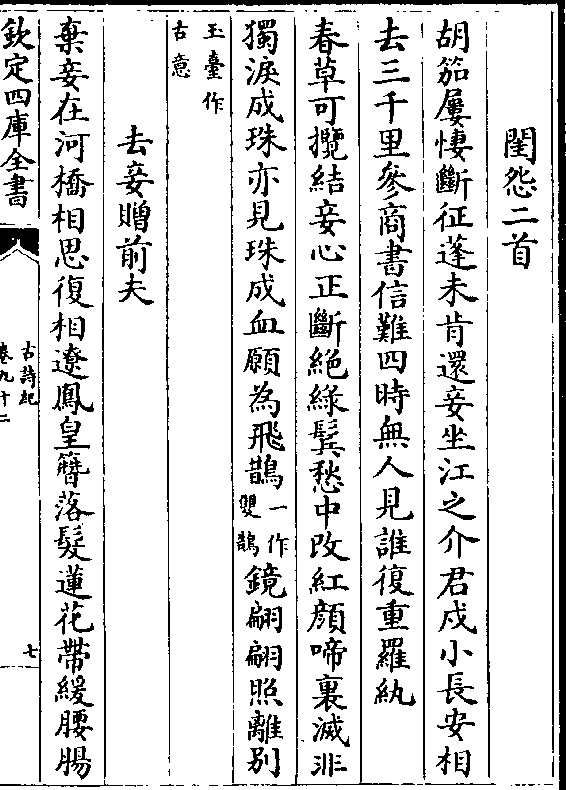 閨怨二首
胡笳屢悽斷征蓬未肯還妾坐江之介君戍小長安相
去三千里參商書信難四時無人見誰復重羅紈
春草可攬結妾心正斷絕綠鬂愁中改紅顔啼裏滅非
獨淚成珠亦見珠成血願為飛鵲一作雙鵲鏡翩翩照離別
玉臺作古意
去妾贈前夫
棄妾在河橋相思復相遼鳳皇簪落髮蓮花帶緩腰腸
欽定四庫全書
古詩紀
卷九十二
七